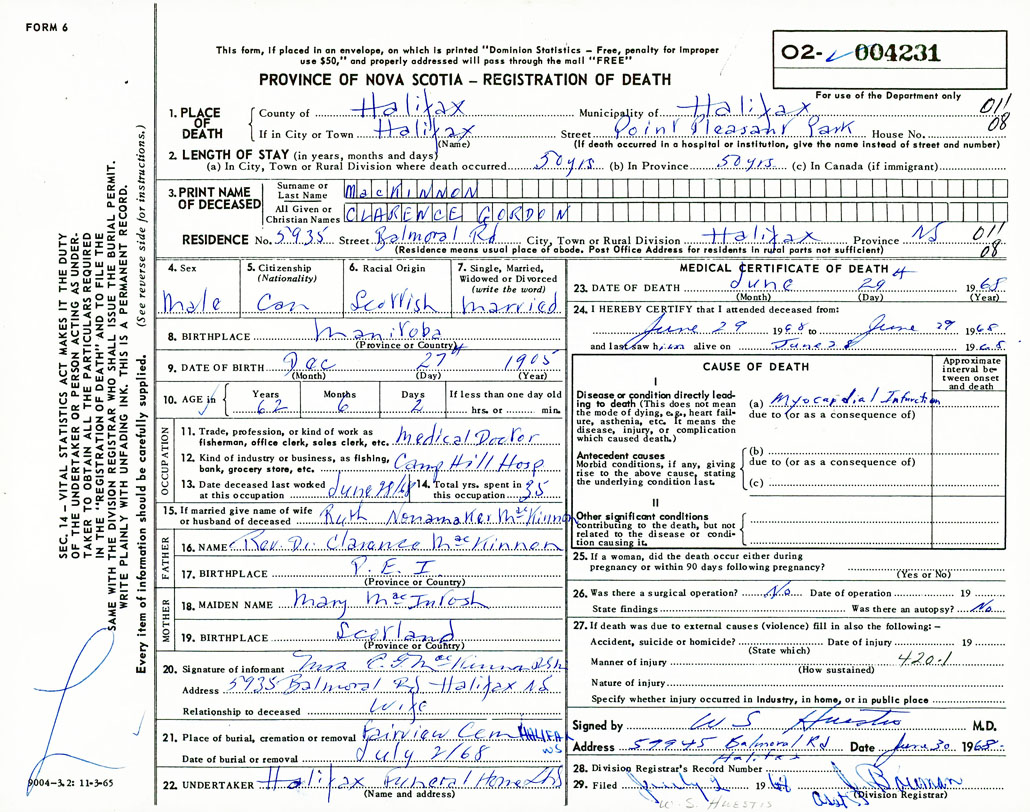 FORM 6
This form, if placed in an envelope, on which is printed "Dominion Statistics – Free, penalty for improper
use $50," and properly addressed will pass through the mail "FREE"
PROVINCE OF NOVA SCOTIA – REGISTRATION OF DEATH
02- 004231
For use of the Department only
SEC. 14 – VITAL STATISTICS ACT MAKES IT THE DUTY
OF THE UNDERTAKER OR PERSON ACTING AS UNDER-
TAKER TO OBTAIN ALL THE PARTICULARS REQUIRED
IN THE "REGISTRATION OF DEATH" AND TO FILE THE
SAME WITH THE DIVISION REGISTRAR WHO SHALL ISSUE THE BURIAL PERMIT.
WRITE PLAINLY WITH UNFADING INK. THIS IS A PERMANENT RECORD.
Every item of information should be carefully supplied. (See reverse side for instructions.)
1. PLACE OF DEATH
County of Halifax Municipality of Halifax 011
If in City or Town Halifax Street Point Pleasant Park House No. 08
(Name) (If death occurred in a hospital or institution, give the name instead of street and number)
2. LENGTH OF STAY (in years, months and days)
(a) In City, Town or Rural Division where death occurred 50 yrs. (b) In Province 50 yrs. (c) In Canada (if immigrant)
3. PRINT NAME OF DECEASED
Surname or Last Name MacKINNON
All Given or Christian Names CLARENCE GORDON
RESIDENCE No. 5935 Street Balmoral Rd City, Town or Rural Division Halifax Province NS 011
(Residence means usual place of abode. Post Office Address for residents in rural parts not sufficient) 08
4. Sex Male
5. Citizenship (Nationality) Can
6. Racial Origin Scottish
7. Single, Married, Widowed or Divorced (write the word) Married
8. BIRTHPLACE Manitoba
(Province or Country)
9. DATE OF BIRTH Dec 27 1905
(Month) (Day) (Year)
10. AGE in Years 62 Months 6 Days 2 If less than one day
hrs. or min.
OCCUPATION
11. Trade, profession, or kind of work as
fisherman, office clerk, sales clerk, etc. Medical Doctor
12. Kind of industry or business, as fishing,
bank, grocery store, etc. Camp Hill Hosp
13. Date deceased last worked
at this occupation June 28/68
14. Total yrs. spent in
this occupation 35
15. If married give name of wife
or husband of deceased Ruth Nonamaker MacKinnon
FATHER
16. NAME Rev. Dr. Clarence MacKinnon
17. BIRTHPLACE P.E.I.
(Province or Country)
MOTHER
18. MAIDEN NAME Mary MacIntosh
19. BIRTHPLACE Scotland
(Province or Country)
20. Signature of informant Mrs C.G. MacKinnon
Address 5935 Balmoral Rd Halifax NS
Relationship to deceased Wife
21. Place of burial, cremation or removal Fairview Cem HALIFAX
WS
Date of burial or removal July 2/68
22. UNDERTAKER Halifax Funeral Home Ltd
(Name and address)
9004-3.2: 11-3-65
MEDICAL CERTIFICATE OF DEATH 4
23. DATE OF DEATH June 29 1968
(Month) (Day) (Year)
24. I HEREBY CERTIFY that I attended deceased from:
June 29 1968 to June 29 1968
and last saw him alive on June 28 1968
CAUSE OF DEATH
Approximate interval between onset and death
I
Disease or condition directly lead-
ing to death (This does not mean
the mode of dying, e.g., heart fail-
ure, asthenia, etc. It means the
disease, injury, or complication
which caused death.)
(a) Myocardial Infarction
due to (or as a consequence of)
Antecedent causes
Morbid conditions, if any, giving
rise to the above cause, stating
the underlying condition last.
(b)
due to (or as a consequence of)
(c)
II
Other significant conditions
contributing to the death, but not
related to the disease or condi-
tion causing it.
25. If a woman, did the death occur either during
pregnancy or within 90 days following pregnancy?
(Yes or No)
26. Was there a surgical operation? No Date of operation 19
State findings Was there an autopsy? No
27. If death was due to external causes (violence) fill in also the following: –
Accident, suicide or homicide? Date of injury 19
(State which)
Manner of injury 420.1
(How sustained)
Nature of injury
Specify whether injury occurred in Industry, in home, or in public place
Signed by W S Huestis M.D.
Address 59945 Balmoral Rd Date June 30 1968
Halifax
28. Division Registrar's Record Number
29. Filed July 2 1968
(Division Registrar)
W. S. HUESTIS